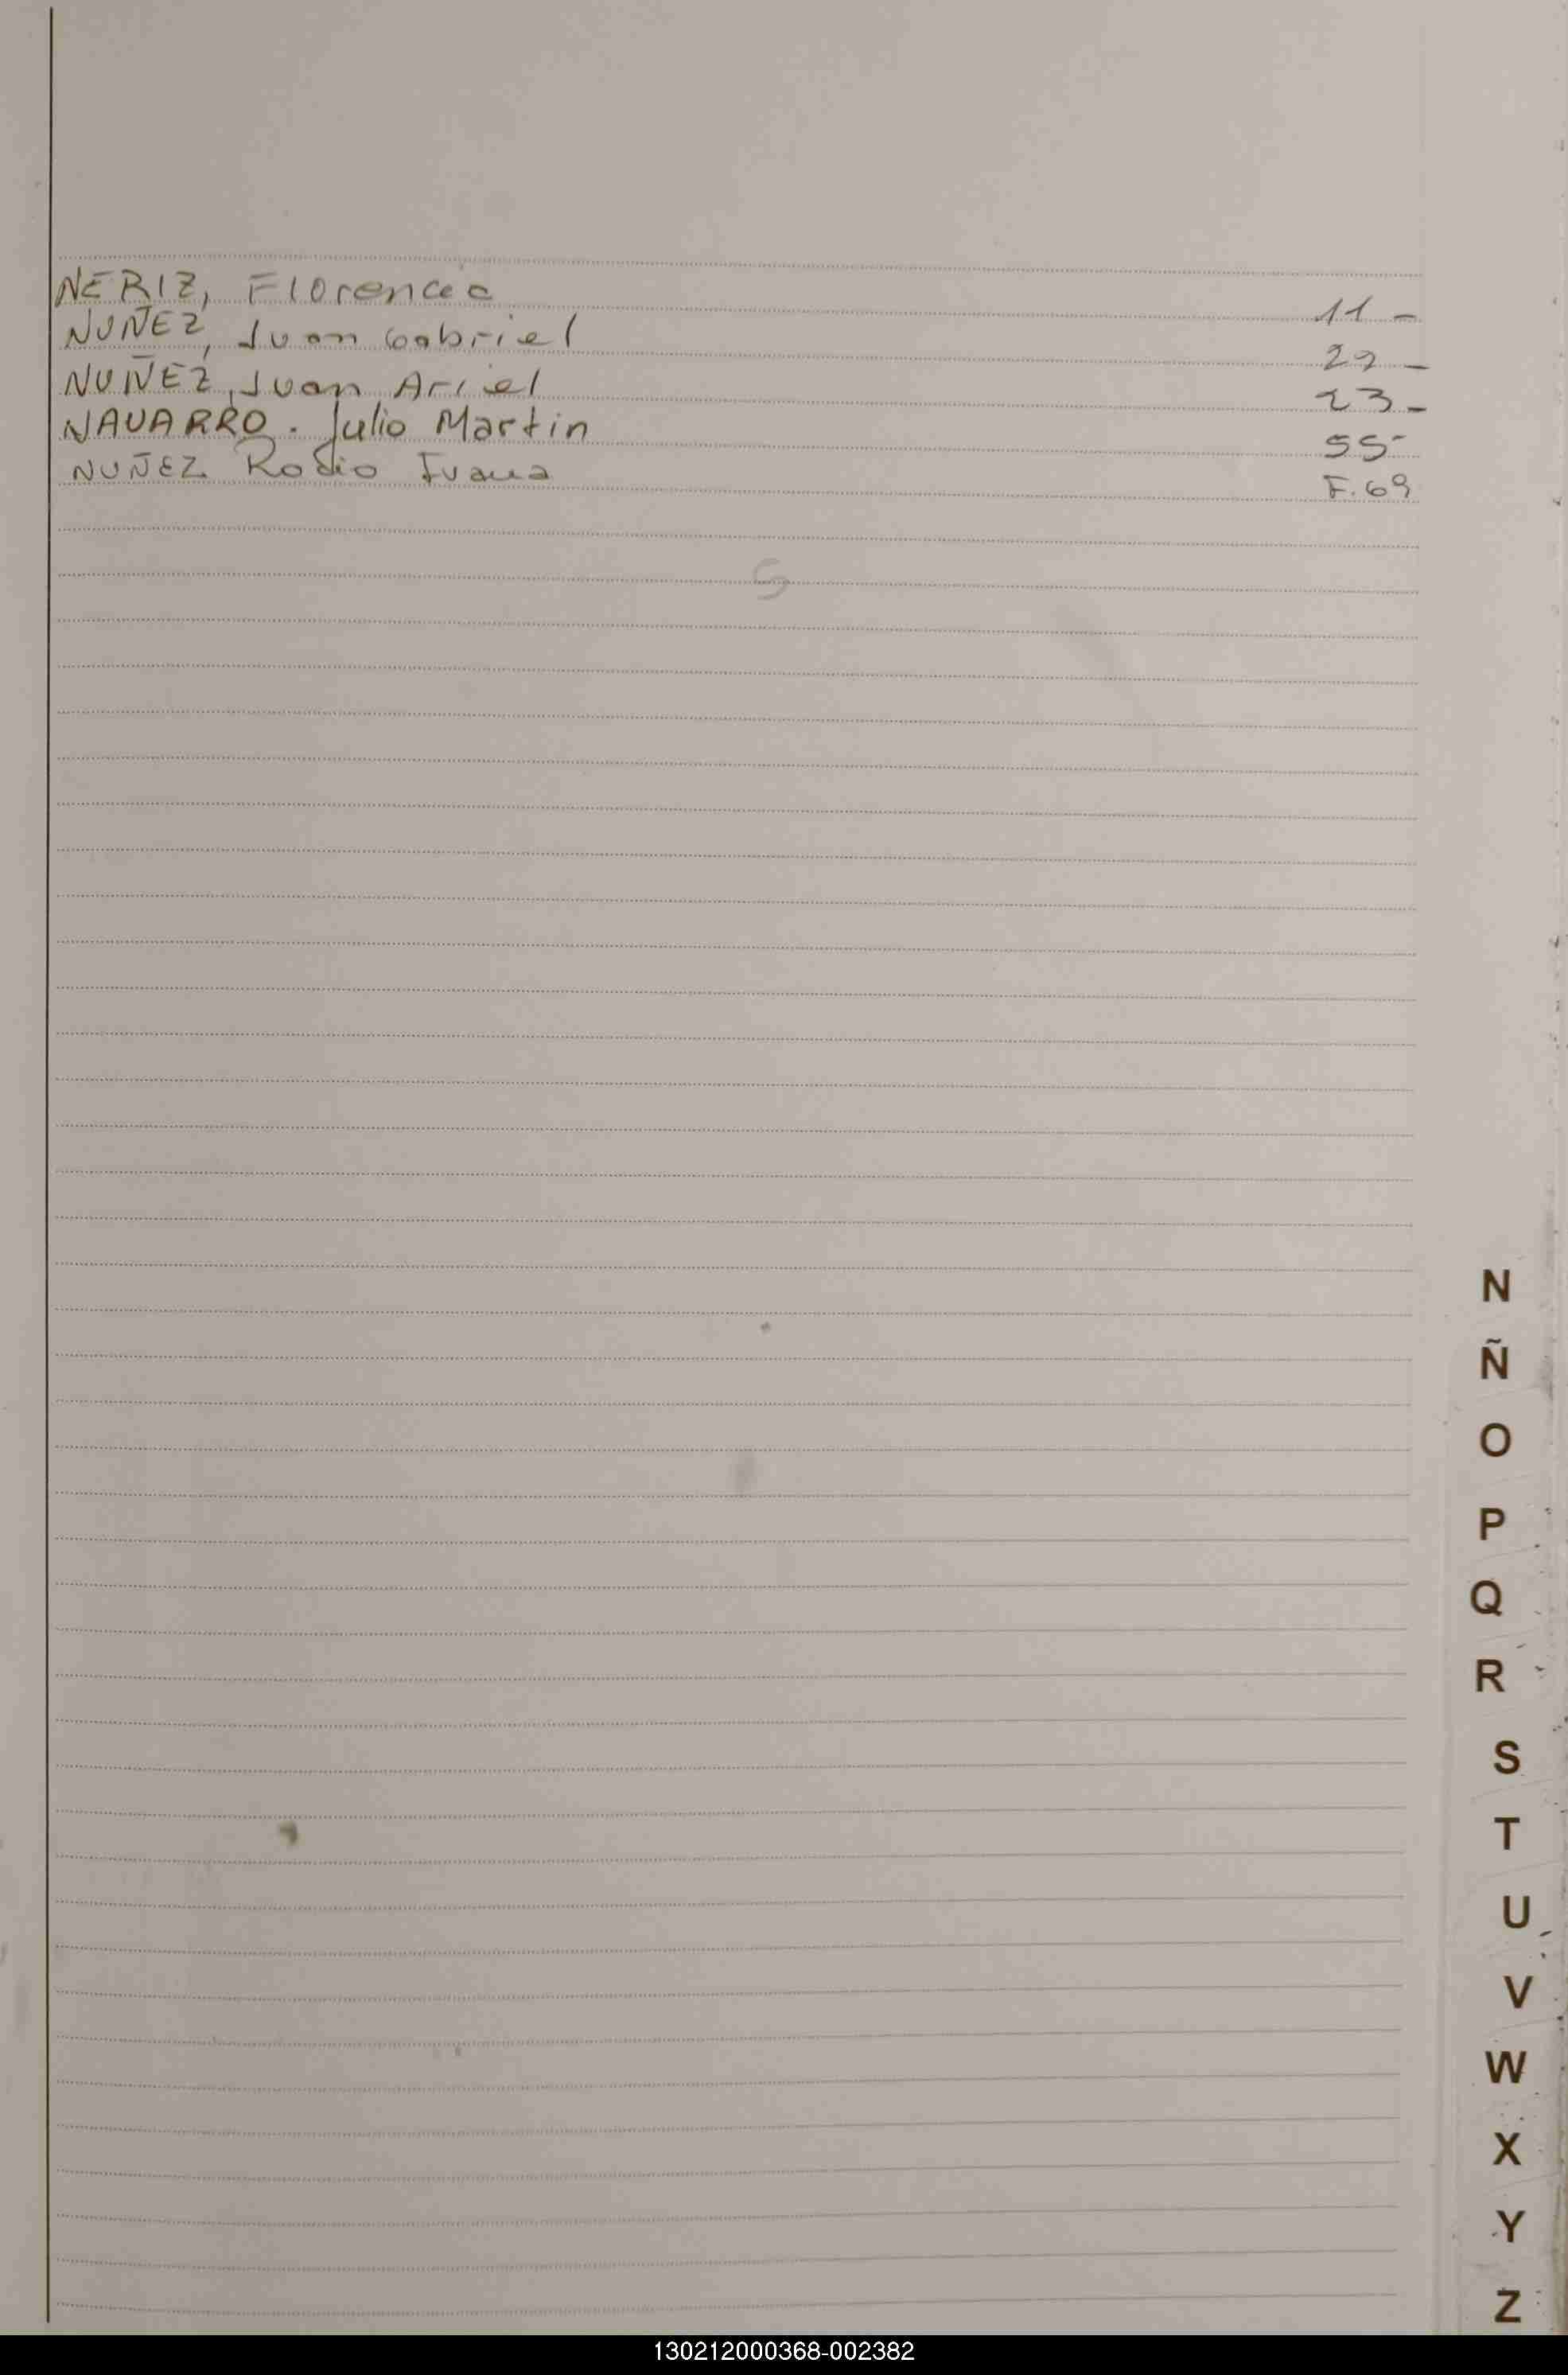 NERIZ, Florencia 11 -
NUÑEZ, Juan Gabriel 22 -
NUÑEZ, Juan Ariel 23 -
NAVARRO. Julio Martin 55 -
NUÑEZ Rocio Ivana F. 69
N
Ñ
O
P
Q
R
S
T
U
V
W
X
Y
Z
130212000368-002382